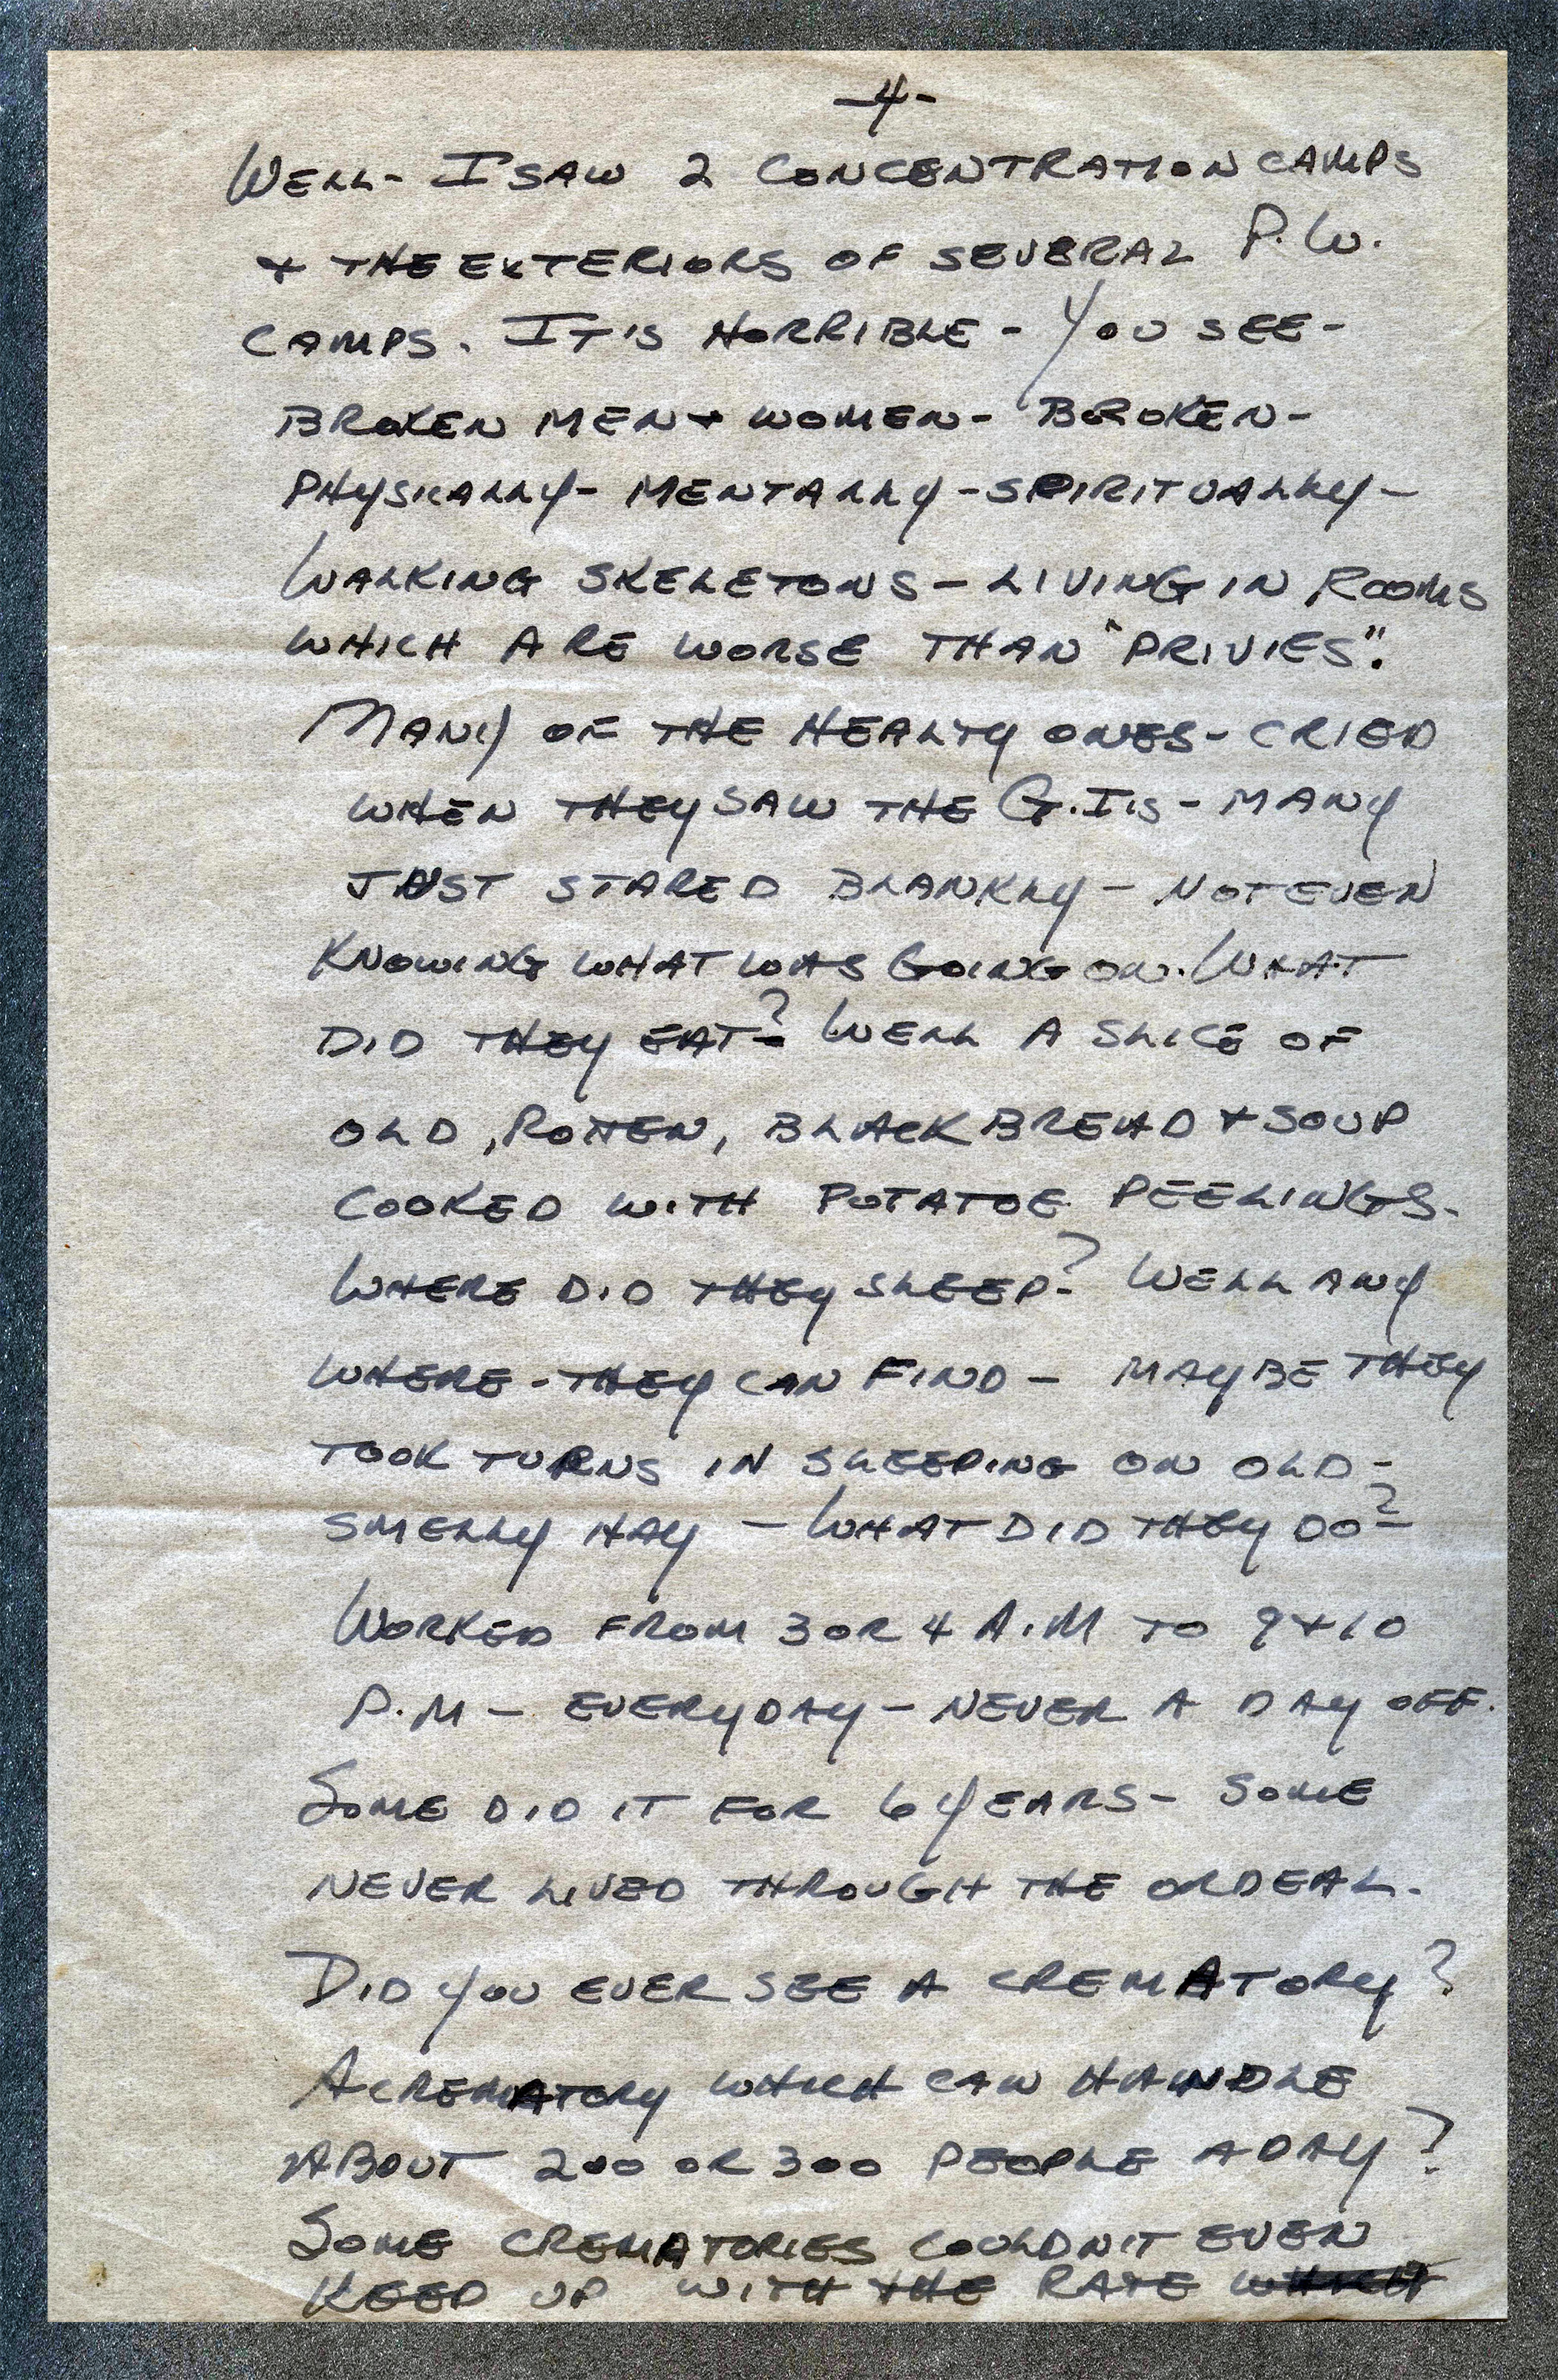 -4-
WELL- I SAW 2 CONCENTRATION CAMPS
+ THE EXTERIORS OF SEVERAL P.W.
CAMPS. IT'S HORRIBLE - YOU SEE-
BROKEN MEN + WOMEN- BROKEN-
PHYSICALLY- MENTALLY -SPIRITUALLY-
WALKING SKELETONS - LIVING IN ROOMS
WHICH ARE WORSE THAN "PRIVIES".
MANY OF THE HEALTY ONES- CRIED
WHEN THEY SAW THE G.I'S - MANY
JUST STARED BLANKLY - NOT EVEN
KNOWING WHAT WAS GOING ON. WHAT
DID THEY EAT? WELL A SLICE OF
OLD, ROTTEN, BLACK BREAD + SOUP
COOKED WITH POTATOE PEELINGS.
WHERE DID THEY SLEEP? WELL ANY
WHERE - THEY CAN FIND - MAYBE THEY
TOOK TURNS IN SLEEPING ON OLD-
SMELLY HAY - WHAT DID THEY DO?
WORKED FROM 3 OR 4 A.M TO 9 + 10
P.M - EVERYDAY - NEVER A DAY OFF.
SOME DID IT FOR 6 YEARS - SOME
NEVER LIVED THROUGH THE ORDEAL.
DID YOU EVER SEE A CREMATORY?
A CREMATORY WHICH CAN HANDLE
ABOUT 200 OR 300 PEOPLE A DAY?
SOME CREMATORIES COULDN'T EVEN
KEEP UP WITH THE RATE WHICH